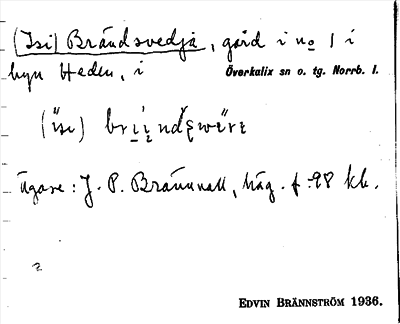 (Isi) Brändsvedja, gård i no 1 i
byn Heden, i Överkalix sn o. tg. Norrb. l.
(ısı)
Ägare: J. P. Brännvall, häg. f. -98 kb.
EDVIN BRÄNNSTRÖM 1936.